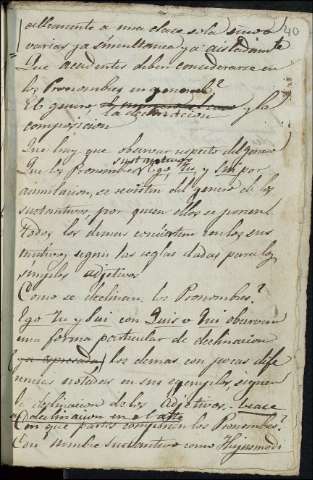 40
a una clase sola sino a
varias ya simultanea ya aisladamte
Que accidentes deben considerarse en
los Pronombres en general?
El genero y la
la declinacion
composicion
Que hay que observar respecto del genero
sustantivos
Que los Pronombres Ego, tu, y sui por
asimilacion, se revisten del genero de los
sustantivos por quien ellos se ponen!
todos los demas conciertan con los sus
segun las reglas dadas para los
simples adjetivos
Como se declinan los Pronombres?
Ego tu y sui con Quis o Qui observan
una forma particular de declinacion
(ya espresada) los demas con pocas dife
rencias notadas en sus ejemplos siguen
la declinacion de los adjetivos. Veace
declinacion en el arte
Con que partes componen los Pronombres?
Con nombre sustantivo como Hujusmodi